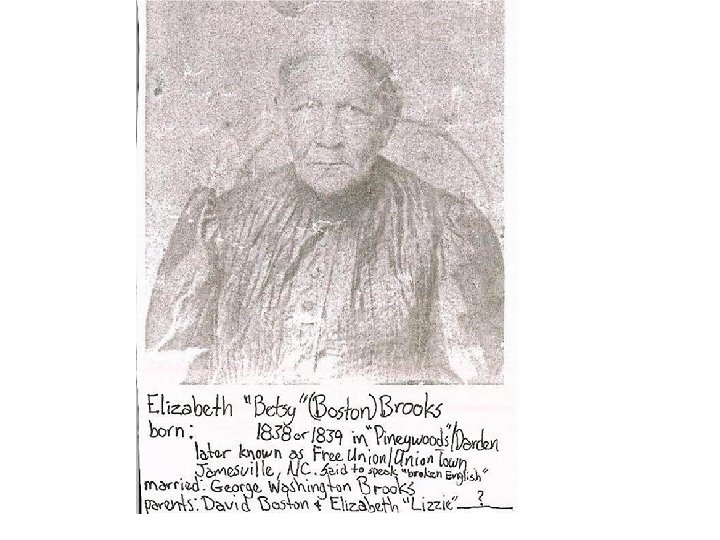 Elizabeth "Betsy" (Boston) Brooks
born: 1838 or 1839 in "Pineywoods"/Darden
later known as Free Union/Union Town
Jamesville, NC. Said to speak "broken English"
married: George Washington Brooks
parents: David Boston + Elizabeth "Lizzie" ?